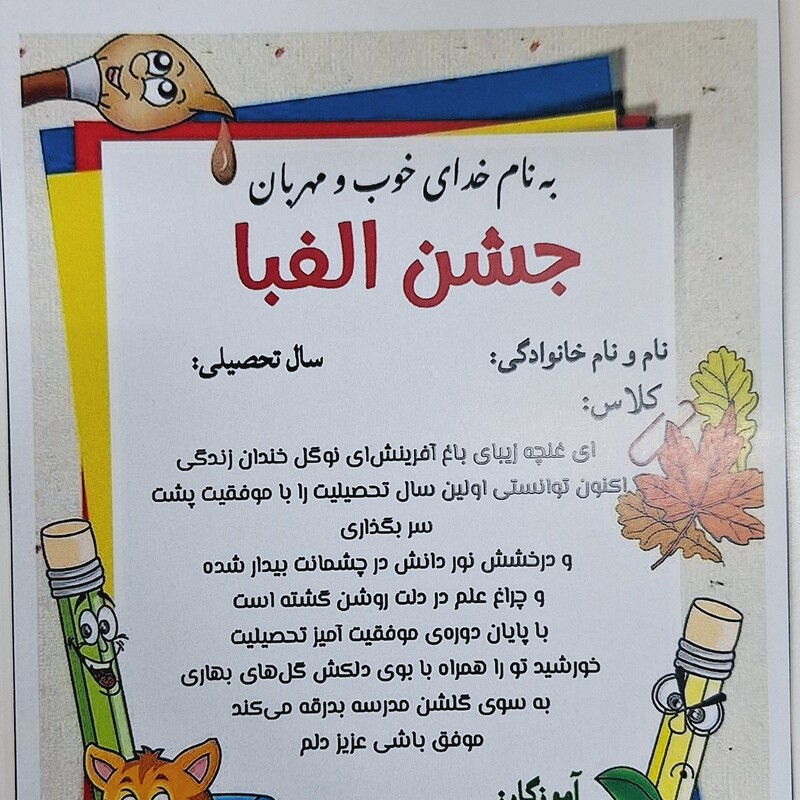 به نام خدای خوب و مهربان
جشن الفبا
نام و نام خانوادگی: سال تحصیلی:
کلاس:
ای غنچه زیبای باغ آفرینش‌ای نوگل خندان زندگی
اکنون توانستی اولین سال تحصیلیت را با موفقیت پشت
سر بگذاری
و درخشش نور دانش در چشمانت بیدار شده
و چراغ علم در دلت روشن گشته است
با پایان دوره‌ی موفقیت آمیز تحصیلیت
خورشید تو را همراه با بوی دلکش گل‌های بهاری
به سوی گلشن مدرسه بدرقه می‌کند
موفق باشی عزیز دلم
آموزگار: